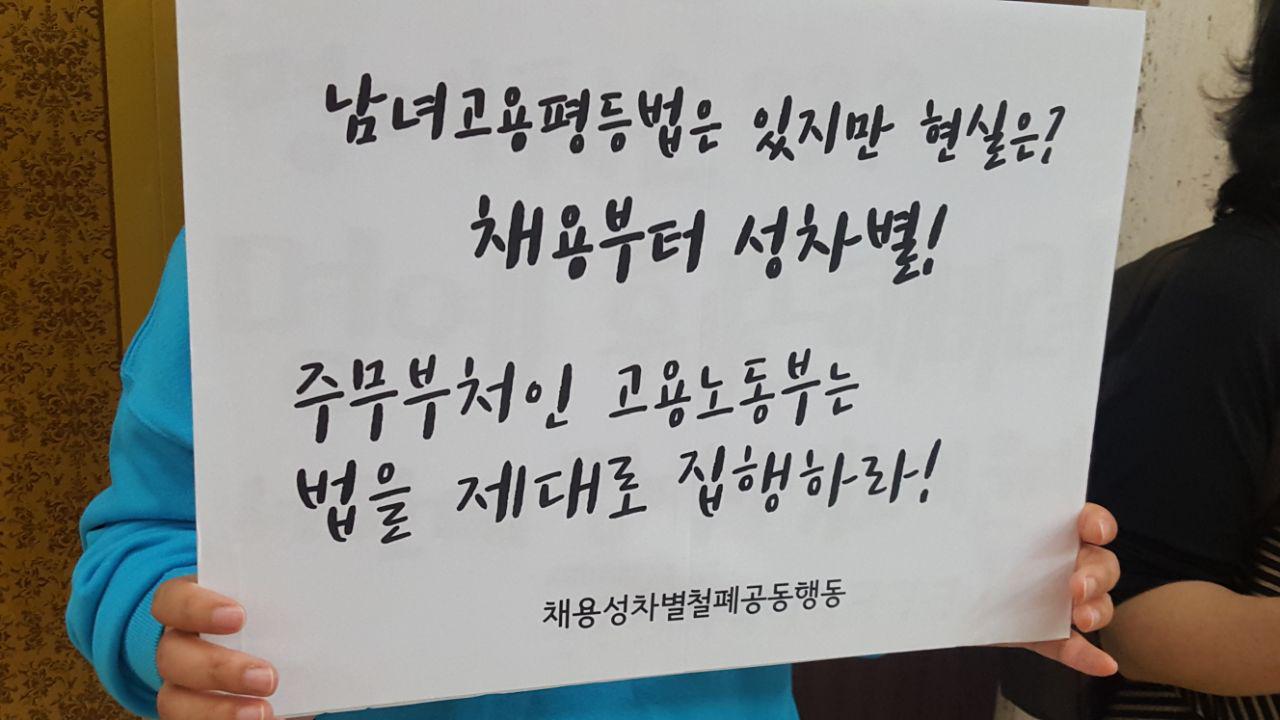 남녀고용평등법은 있지만 현실은?
채용부터 성차별!
주무부처인 고용노동부는
법을 제대로 집행하라!
채용성차별철폐공동행동